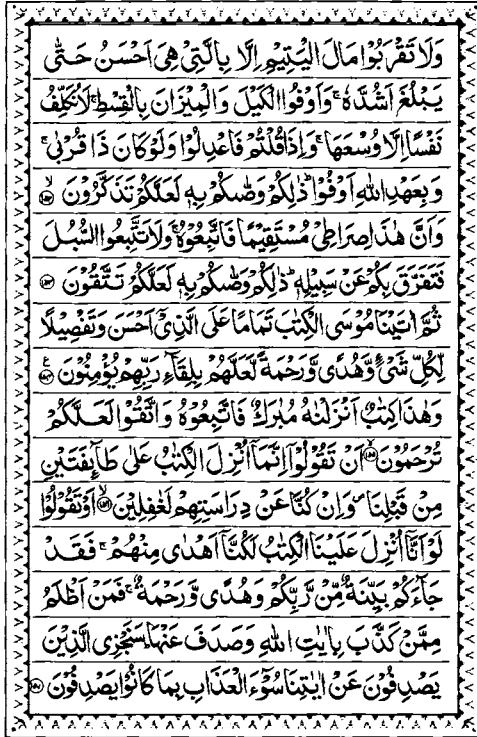 وَلَا تَقْرَبُوْا مَالَ الْيَتِيْمِ اِلَّا بِالَّتِيْ هِيَ اَحْسَنُ حَتّٰى
يَبْلُغَ اَشُدَّهٗ ۚ وَاَوْفُوا الْكَيْلَ وَالْمِيْزَانَ بِالْقِسْطِ ۚ لَا نُكَلِّفُ
نَفْسًا اِلَّا وُسْعَهَا ۚ وَاِذَا قُلْتُمْ فَاعْدِلُوْا وَلَوْ كَانَ ذَا قُرْبٰى ۚ
وَبِعَهْدِ اللّٰهِ اَوْفُوْا ؕ ذٰلِكُمْ وَصّٰىكُمْ بِهٖ لَعَلَّكُمْ تَذَكَّرُوْنَ ۙ﴿۱۵۲﴾
وَاَنَّ هٰذَا صِرَاطِيْ مُسْتَقِيْمًا فَاتَّبِعُوْهُ ۚ وَلَا تَتَّبِعُوا السُّبُلَ
فَتَفَرَّقَ بِكُمْ عَنْ سَبِيْلِهٖ ؕ ذٰلِكُمْ وَصّٰىكُمْ بِهٖ لَعَلَّكُمْ تَتَّقُوْنَ ﴿۱۵۳﴾
ثُمَّ اٰتَيْنَا مُوْسَى الْكِتٰبَ تَمَامًا عَلَى الَّذِيْٓ اَحْسَنَ وَتَفْصِيْلًا
لِّكُلِّ شَيْءٍ وَّهُدًى وَّرَحْمَةً لَّعَلَّهُمْ بِلِقَآءِ رَبِّهِمْ يُؤْمِنُوْنَ ﴿۱۵۴﴾ۧ
وَهٰذَا كِتٰبٌ اَنْزَلْنٰهُ مُبٰرَكٌ فَاتَّبِعُوْهُ وَاتَّقُوْا لَعَلَّكُمْ
تُرْحَمُوْنَ ۙ﴿۱۵۵﴾ اَنْ تَقُوْلُوْٓا اِنَّمَآ اُنْزِلَ الْكِتٰبُ عَلٰى طَآئِفَتَيْنِ
مِنْ قَبْلِنَا ۪ وَاِنْ كُنَّا عَنْ دِرَاسَتِهِمْ لَغٰفِلِيْنَ ۙ﴿۱۵۶﴾ اَوْ تَقُوْلُوْا
لَوْ اَنَّآ اُنْزِلَ عَلَيْنَا الْكِتٰبُ لَكُنَّآ اَهْدٰى مِنْهُمْ ۚ فَقَدْ
جَآءَكُمْ بَيِّنَةٌ مِّنْ رَّبِّكُمْ وَهُدًى وَّرَحْمَةٌ ۚ فَمَنْ اَظْلَمُ
مِمَّنْ كَذَّبَ بِاٰيٰتِ اللّٰهِ وَصَدَفَ عَنْهَا ؕ سَنَجْزِي الَّذِيْنَ
يَصْدِفُوْنَ عَنْ اٰيٰتِنَا سُوْٓءَ الْعَذَابِ بِمَا كَانُوْا يَصْدِفُوْنَ ﴿۱۵۷﴾